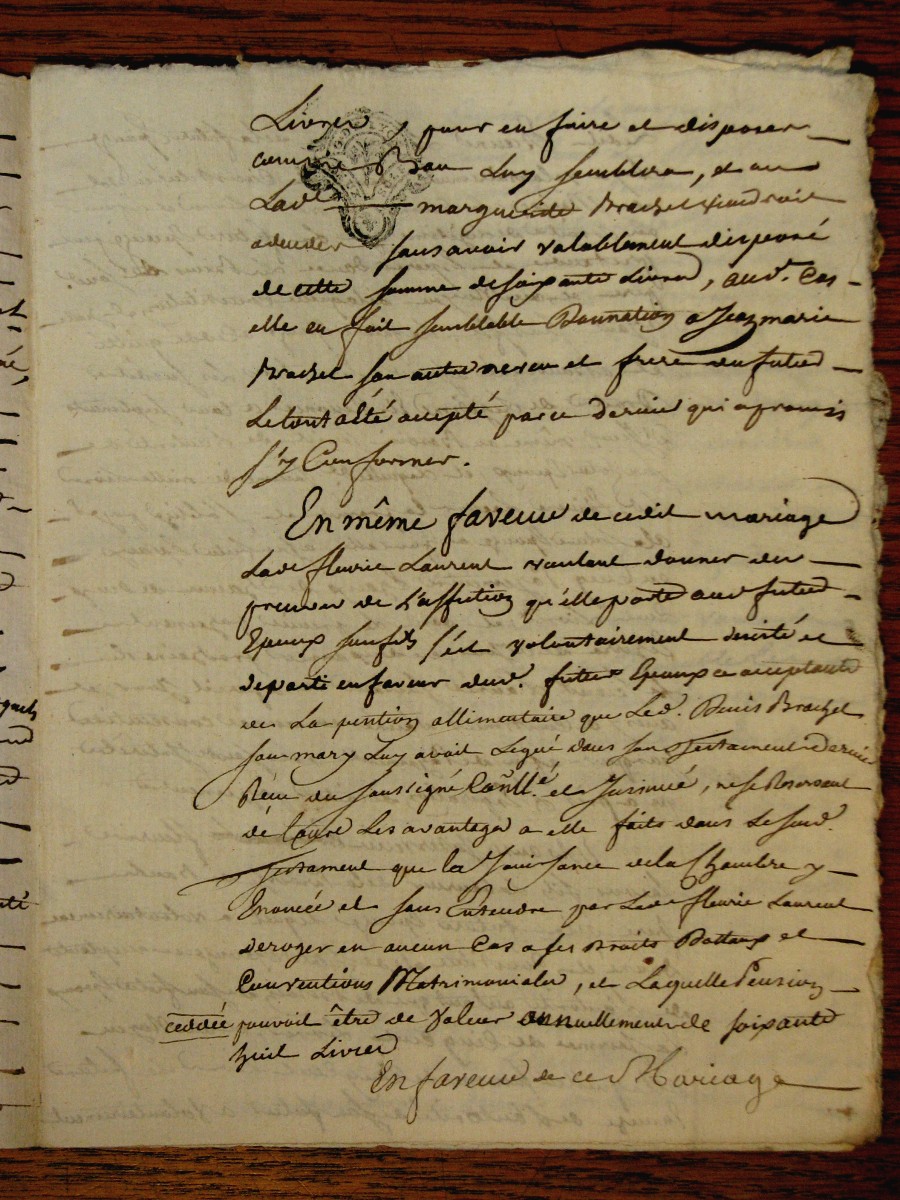 Livres, pour en faire et disposer
comme Bon Luy semblera, et au
Lad. marguerite Brachet viendroit
a deceder sans avoir valablement disposé
de cette somme de soixante Livres, aud. Cas
elle en fait semblable Donnation a Jean marie
Brachet son autre neveu et frere du futur
Le tout a êté accepté par ce dernier qui a promis
s'y Conformer.
En même faveur de cedit mariage
Lade fleurie Laurent voulant donner des
preuves de L'affection qu'elle porte aud futur
Epoux son fils s'est volontairement desisté et
departi en faveur dud. futur Epoux ce acceptant
de La pention allimentaire que Led. Denis Brachet
son mary Luy avoit Legué dans son testament dernier
Reçu du soussigné et Insinué, ne se Reservant
de tous Les avantages a elle faits dans Le sud.
testament que la Jouissance de la Chambre y
Enoncée et sans Entendre par Lade fleurie Laurent
deroger en aucun Cas a ses Droits Dottaux et
Conventions Matrimoniales, et Laquelle Pension
ceddée pouvoit être de Valeur annuellement de soixante
huit Livres
En faveur de ce Mariage